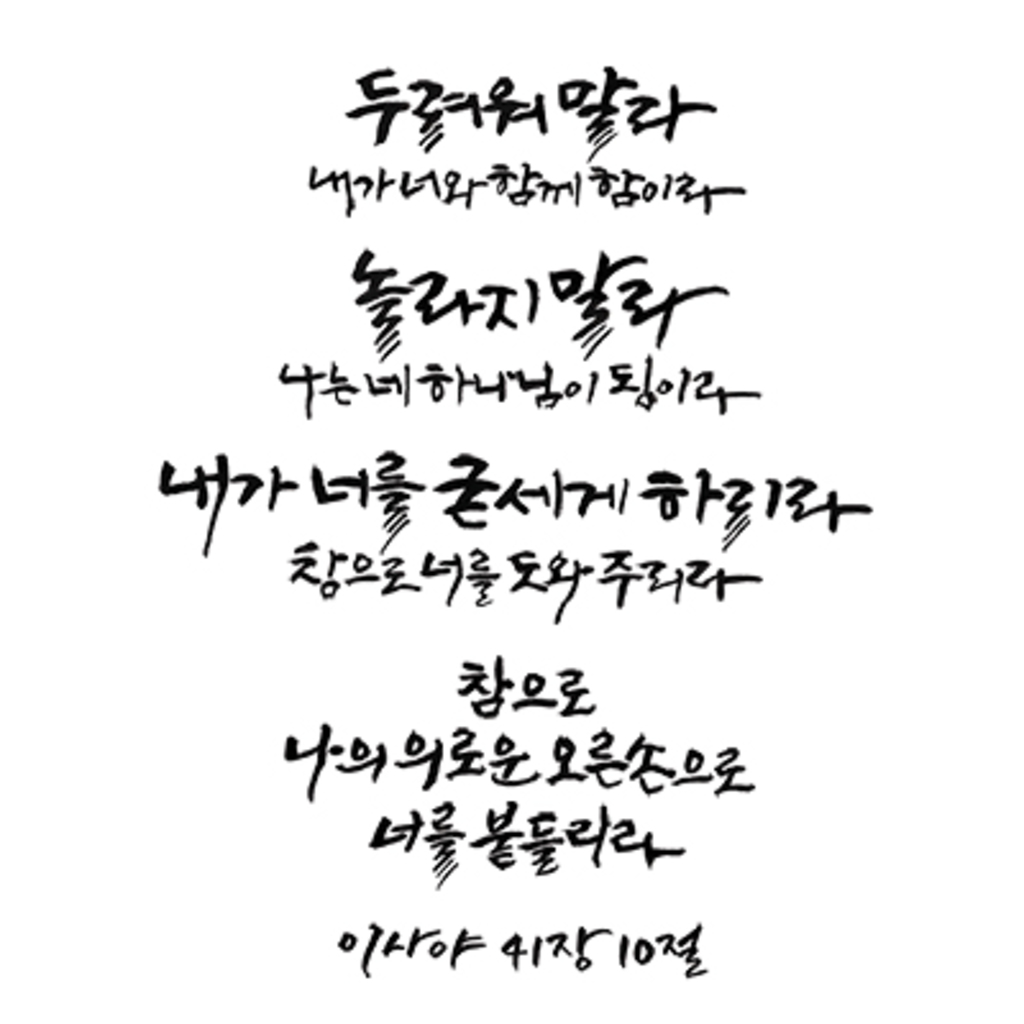 두려워 말라
내가 너와 함께 함이라
놀라지 말라
나는 네 하나님이 됨이라
내가 너를 굳세게 하리라
참으로 너를 도와 주리라
참으로
나의 의로운 오른손으로
너를 붙들리라
이사야 41장 10절